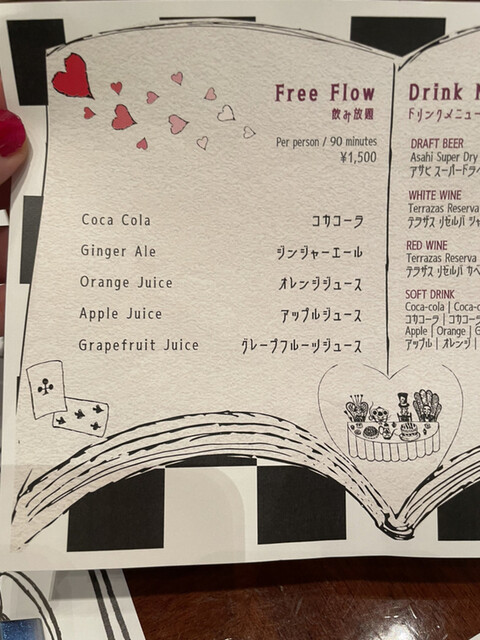 Free Flow
飲み放題
Per person / 90 minutes
¥1,500
Coca Cola コカコーラ
Ginger Ale ジンジャーエール
Orange Juice オレンジジュース
Apple Juice アップルジュース
Grapefruit Juice グレープフルーツジュース
Drink
ドリンクメニュー
DRAFT BEER
Asahi Super Dry
アサヒ スーパードラ
WHITE WINE
Terrazas Reserva
テラザス リゼルバ
RED WINE
Terrazas Reserva
テラザス リゼルバ
SOFT DRINK
Coca-cola |
コカコーラ |
Apple | Orange |
アップル | オレンジ |